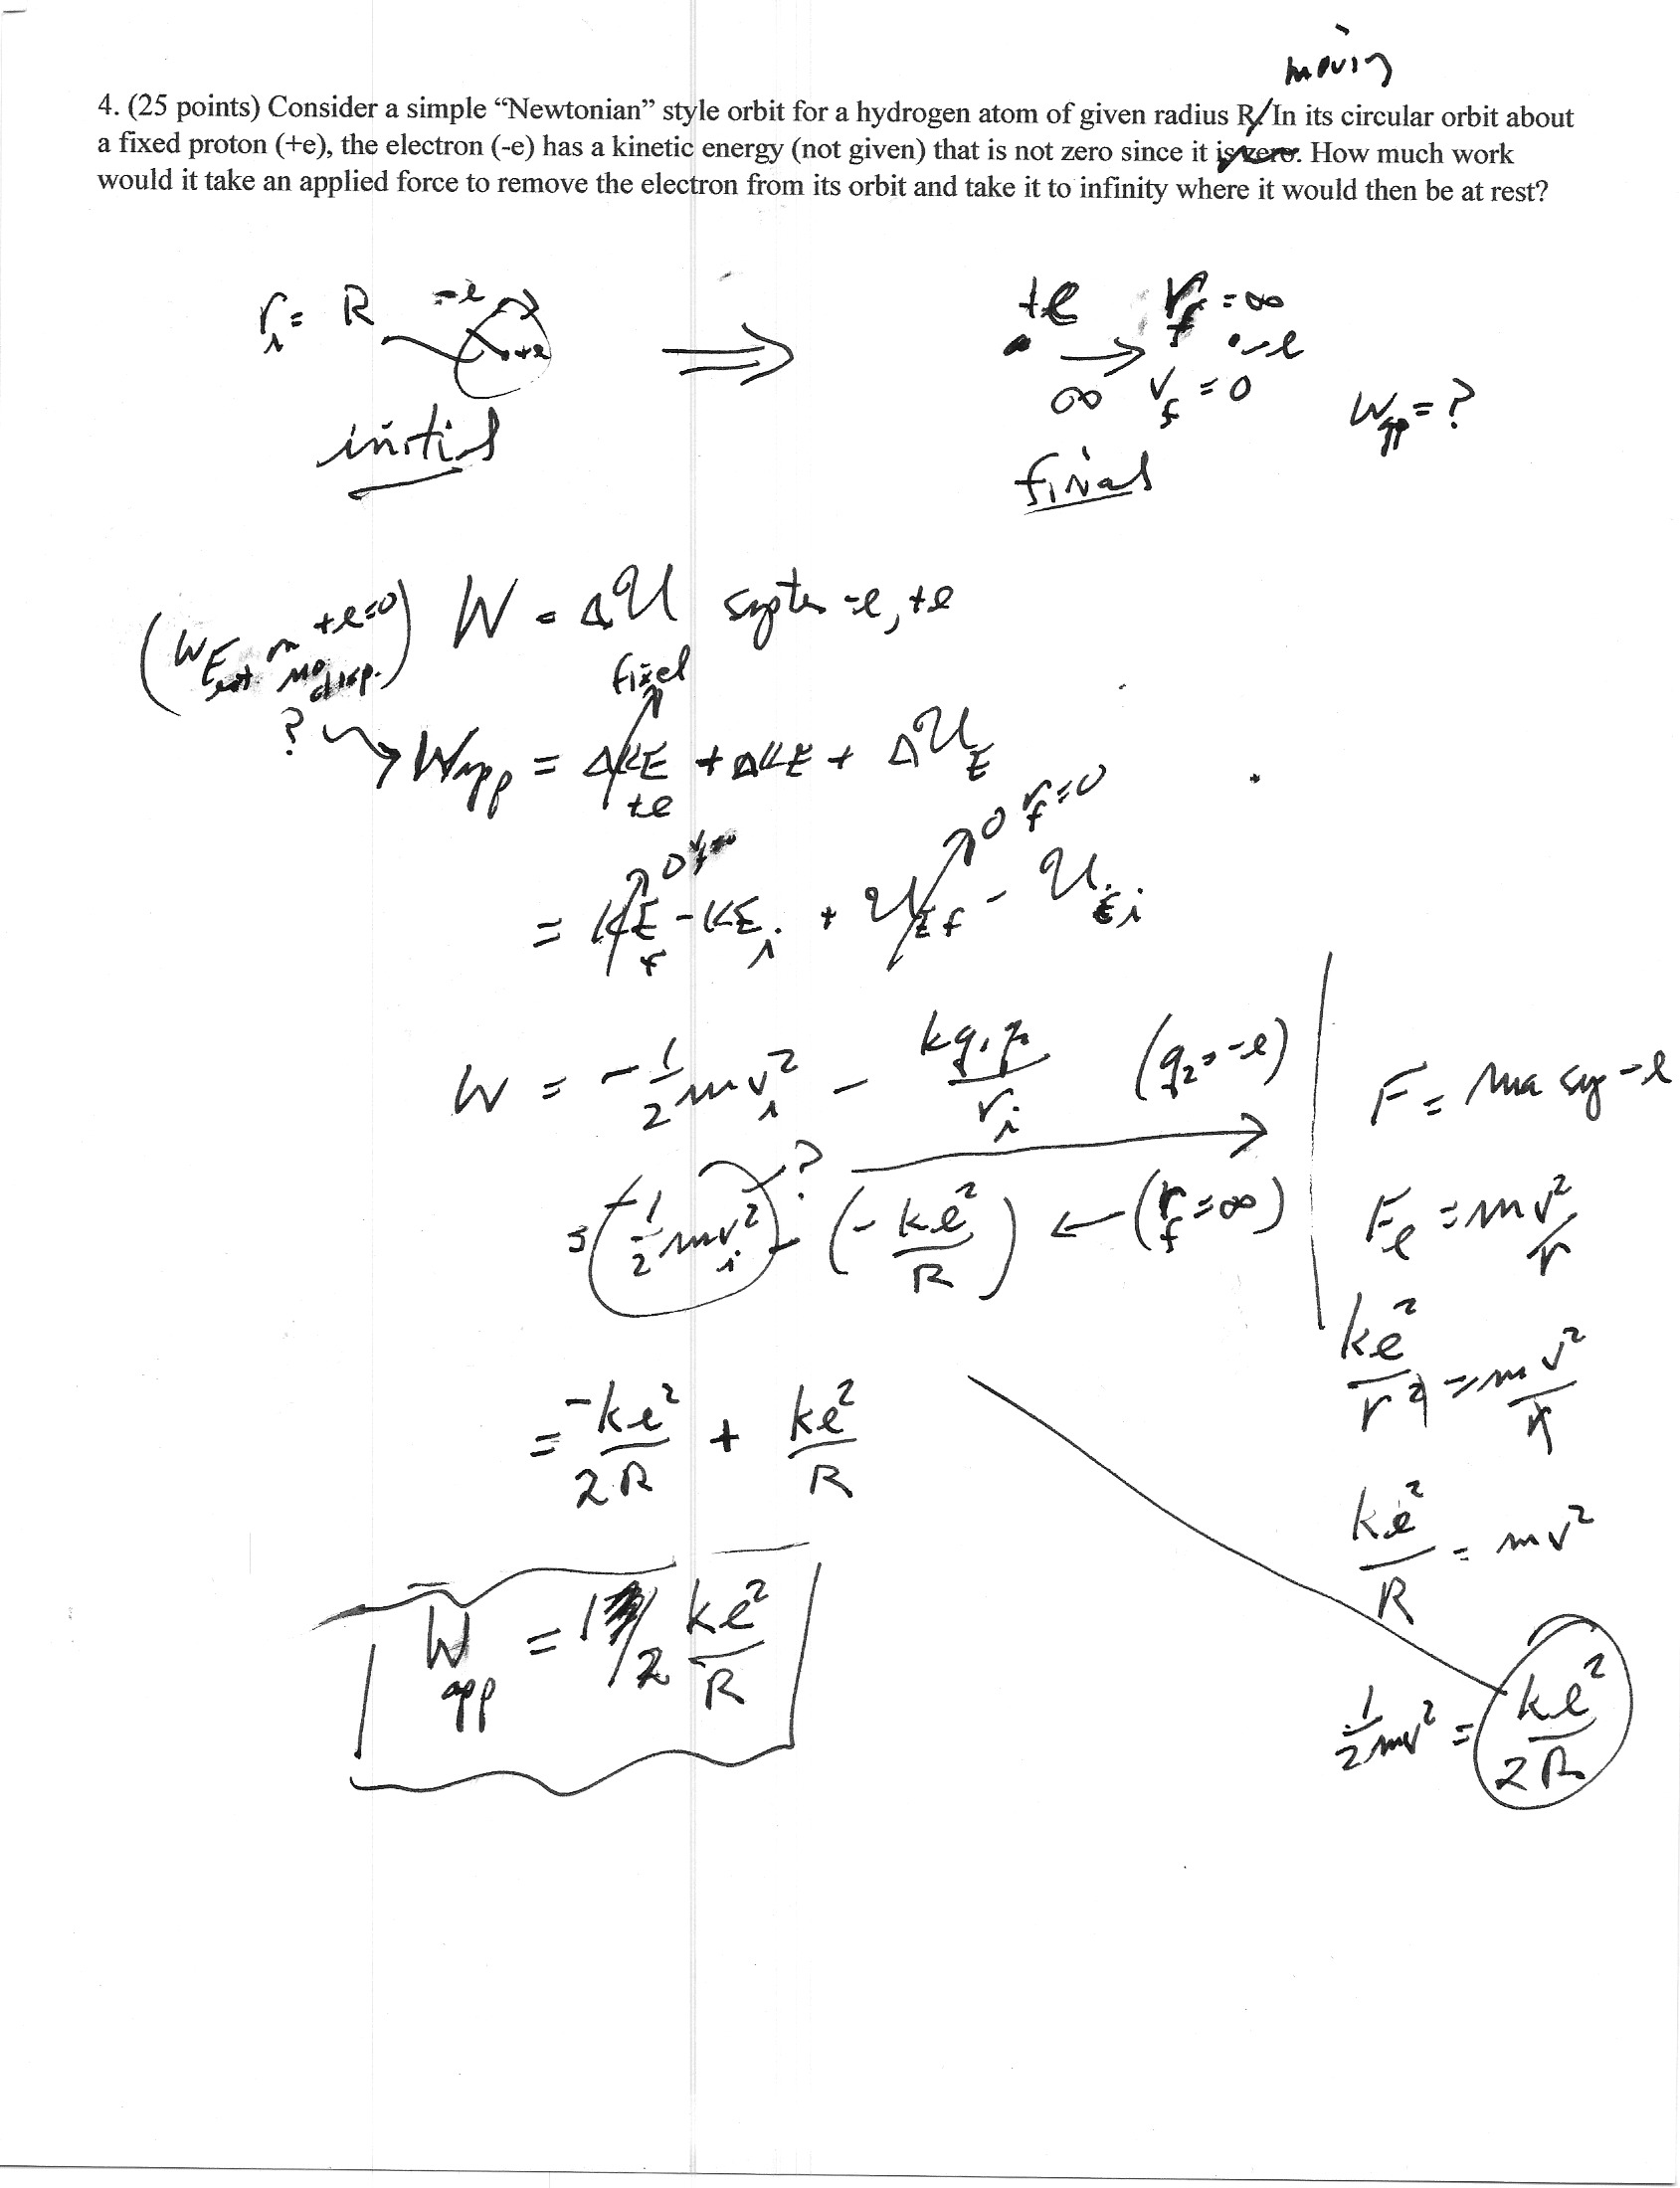 moving
4. (25 points) Consider a simple “Newtonian” style orbit for a hydrogen atom of given radius R. In its circular orbit about
a fixed proton (+e), the electron (-e) has a kinetic energy (not given) that is not zero since it is zero. How much work
would it take an applied force to remove the electron from its orbit and take it to infinity where it would then be at rest?
r_i = R -e +e ⇒ +e → ∞ r_f = ∞ -e v_f = 0
initial final W_app = ?
(W_Ext on +e = 0 no disp.) W = ΔU system -e, +e
fixed
? W_app = ΔKE_+e + ΔKE + ΔU_E
0 0 r_f = 0
= KE_f - KE_i + U_Ef - U_Ei
W = -1/2 mv_i² - kq₁q₂/r_i (q₂ = -e)
F = ma sy -e
= (-1/2 mv_i²) - (-ke²/R) ← (r_f = ∞)
?
F_e = mv²/r
ke²/r² = mv²/r
= -ke²/2R + ke²/R
ke²/R = mv²
W_app = 1/2 ke²/R
1/2 mv² = ke²/2R